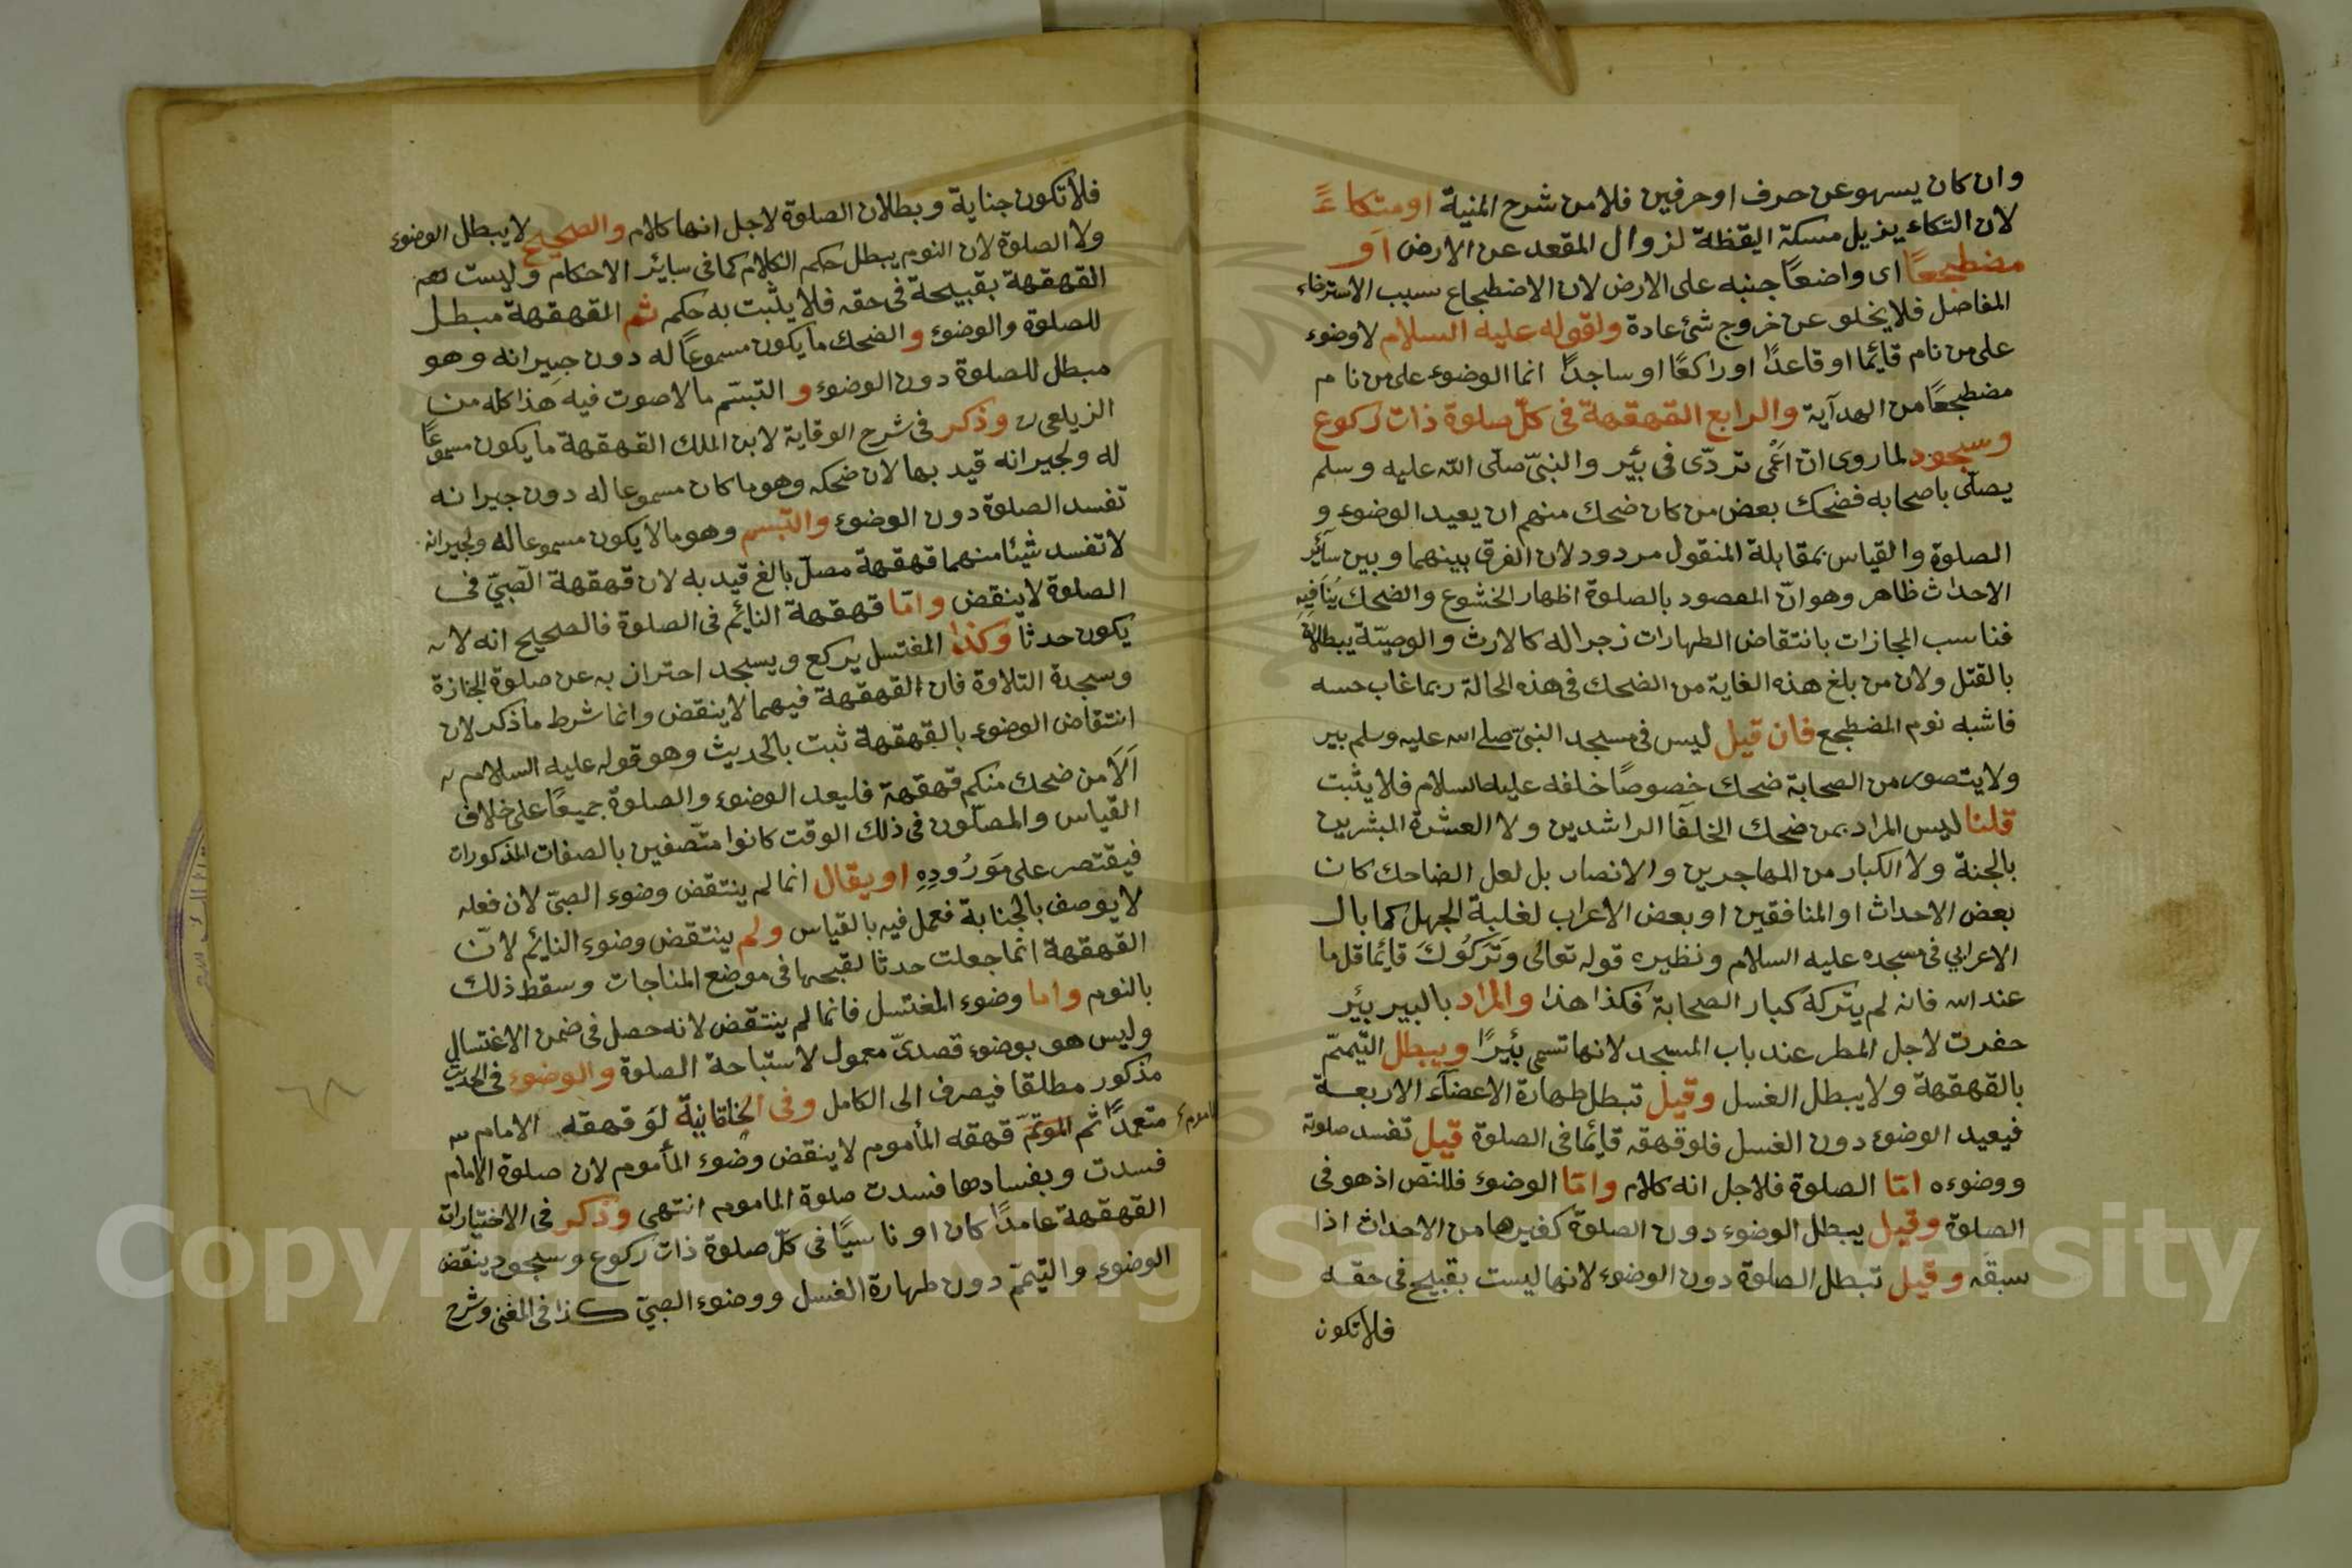 وان كان يسهو عن حرف او حرفين فلا من شرح المنية او متكاءً
لان التكاء يزيل مسكة اليقظة لزوال المقعد عن الارض او
مضطجعًا اى واضعًا جنبه على الارض لان الاضطجاع سبب الاسترخاء
المفاصل فلا يخلو عن خروج شئ عادة ولقوله عليه السلام لا وضوء
على من نام قائما او قاعدًا او راكعًا او ساجدًا انما الوضوء على من نام
مضطجعًا من الهدآية والرابع القهقهة فى كلّ صلوة ذات ركوع
وسجود لما روى ان اعْمى تردّى فى بئير والنبىّ صلّى الله عليه وسلم
يصلّى باصحابه فضحك بعض من كان ضحك منهم ان يعيد الوضوء و
الصلوة والقياس بمقابلة المنقول مردود لان الفرق بينهما وبين سآئر
الاحداث ظاهر وهو انّ المقصود بالصلوة اظهار الخشوع والضحك يُنَافِيهِ
فناسب المجازات بانتقاض الطهارات زجرا له كالارث والوصيّة يبطلان
بالقتل ولان من بلغ هذه الغاية من الضحك فى هذه الحالة ربما غاب حسه
فاشبه نوم المضطجع فان قيل ليس فى مسجد النبىّ صلى الله عليه وسلم بير
ولا يتصور من الصحابة ضحك خصوصًا خلفه عليه السلام فلا يثبت
قلنا ليس المراد بمن ضحك الخلفآ الراشدين ولا العشرة المبشرين
بالجنة ولا الكبار من المهاجرين والانصار بل لعل الضاحك كان
بعض الاحداث او المنافقين او بعض الاعراب لغلبة الجهل كما بال
الاعرابي فى مسجده عليه السلام ونظيره قوله تعالى وَتَرَكُوكَ قائما قل ما
عند الله فانه لم يتركه كبار الصحابة فكذا هذا والمراد بالبير بئير
حفرت لاجل المطر عند باب المسجد لانها تسمى بئيرًا ويبطل التيممّ
بالقهقهة ولا يبطل الغسل وقيل تبطل طهارة الاعضآء الاربعة
فيعيد الوضوء دون الغسل فلو قهقه قائما فى الصلوة قيل تفسد صلوته
ووضوءه امّا الصلوة فلاجل انه كلام وامّا الوضوء فللنّص اذ هو فى
الصلوة وقيل يبطل الوضوء دون الصلوة كغيرها من الاحداث اذا
سبقه وقيل تبطل الصلوة دون الوضوء لانها ليست بقبيح فى حقه
فلا تكون
فلا تكون جناية وبطلان الصلوة لاجل انها كلام والصحيح لا يبطل الوضوء
ولا الصلوة لان النوم يبطل حكم الكلام كما فى سائر الاحكام وليست
القهقهة بقبيحة فى حقه فلا يثبت به حكم ثم القهقهة مبطل
للصلوة والوضوء والضحك ما يكون مسموعًا له دون جيرانه وهو
مبطل للصلوة دون الوضوء والتبسّم ما لا صوت فيه هذا كله من
الزيلعى وذكر فى شرح الوقاية لابن الملك القهقهة ما يكون مسموعًا
له ولجيرانه قيد بها لان ضحكه وهو ما كان مسموعا له دون جيرانه
تفسد الصلوة دون الوضوء والتبسم وهو ما لا يكون مسموعا له ولجيرانه
لا تفسد شيئا منهما قهقهة مصلّ بالغ قيد به لان قهقهة الصّبىّ فى
الصلوة لا ينقض وامّا قهقهة النائم فى الصلوة فالصحيح انه لا
يكون حدثا وكذا المغتسل يركع ويسجد احتراز به عن صلوة الجنازة
وسجدة التلاوة فان القهقهة فيهما لا ينقض وانما شرط ما ذكر لان
انتقاض الوضوء بالقهقهة ثبت بالحديث وهو قوله عليه السلام
اَلَا من ضحك منكم قهقهة فليعد الوضوء والصلوة جميعًا على خلاف
القياس والمصلّون فى ذلك الوقت كانوا متّصفين بالصفات المذكورات
فيقتصر على مَوْرُودِهِ او يقال انما لم ينتقض وضوء الصبىّ لان فعله
لا يوصف بالجناية فعمل فيه بالقياس ولم ينتقض وضوء النائم لانّ
القهقهة انّما جعلت حدثا لقبحها فى موضع المناجات وسقط ذلك
بالنوم واما وضوء المغتسل فانما لم ينتقض لانه حصل فى ضمن الاغتسال
وليس هو بوضوء قصدىّ معمول لاستباحة الصلوة والوضوء فى الحديث
مذكور مطلقا فيصرف الى الكامل وفى الخاقانيّة لو قهقه الامام
متعمدًا ثم الموتمّ قهقه المأموم لا ينقض وضوء المأموم لان صلوة الامام
فسدت وبفسادها فسدت صلوة الماموم انتهى وذكر فى الاختيارات
القهقهة عامدًا كان او ناسيًا فى كلّ صلوة ذات ركوع وسجود ينقض
الوضوء والتيّممّ دون طهارة الغسل ووضوء الصبىّ كذا فى المغنى وشرح
٦٨
Copyright © King Saud University